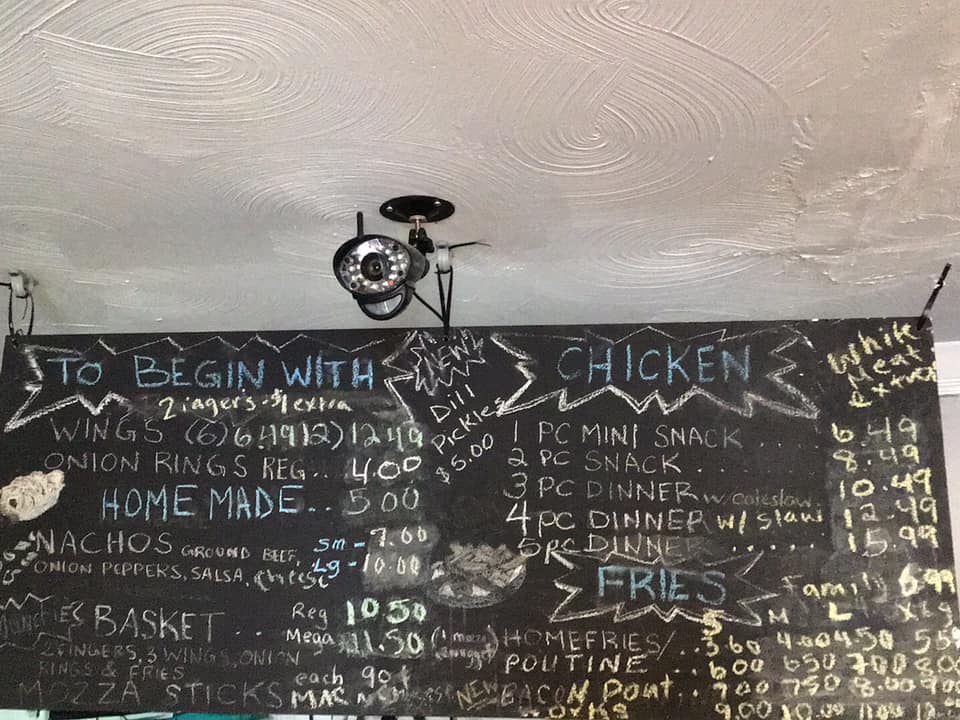 TO BEGIN WITH
Zingers $1 extra
WINGS (6) 6.49 12) 12.49
ONION RINGS REG.. 4.00
HOME MADE.. 5.00
NACHOS GROUND BEEF,
ONION PEPPERS, SALSA, cheese
Sm - 7.00
Lg - 10.00
MUNCHIES BASKET .. Reg 10.50
Mega 11.50
2 FINGERS, 3 WINGS, ONION
RINGS & FRIES
each 90¢
MOZZA STICKS
NEW!
Dill
Pickles
$5.00
CHICKEN
White
Meat
extra
1 PC MINI SNACK .... 6.49
2 PC SNACK ..... 8.49
3 PC DINNER w/coleslaw. 10.49
4 PC DINNER w/ slaw 12.49
5 PC DINNER ...... 15.99
FRIES
Family 6.99
S M L XLg
HOMEFRIES/.. 3.60 4.00 4.50
POUTINE .... 6.00 6.50 7.00
NEW BACON Pout.. 7.00 7.50 8.00